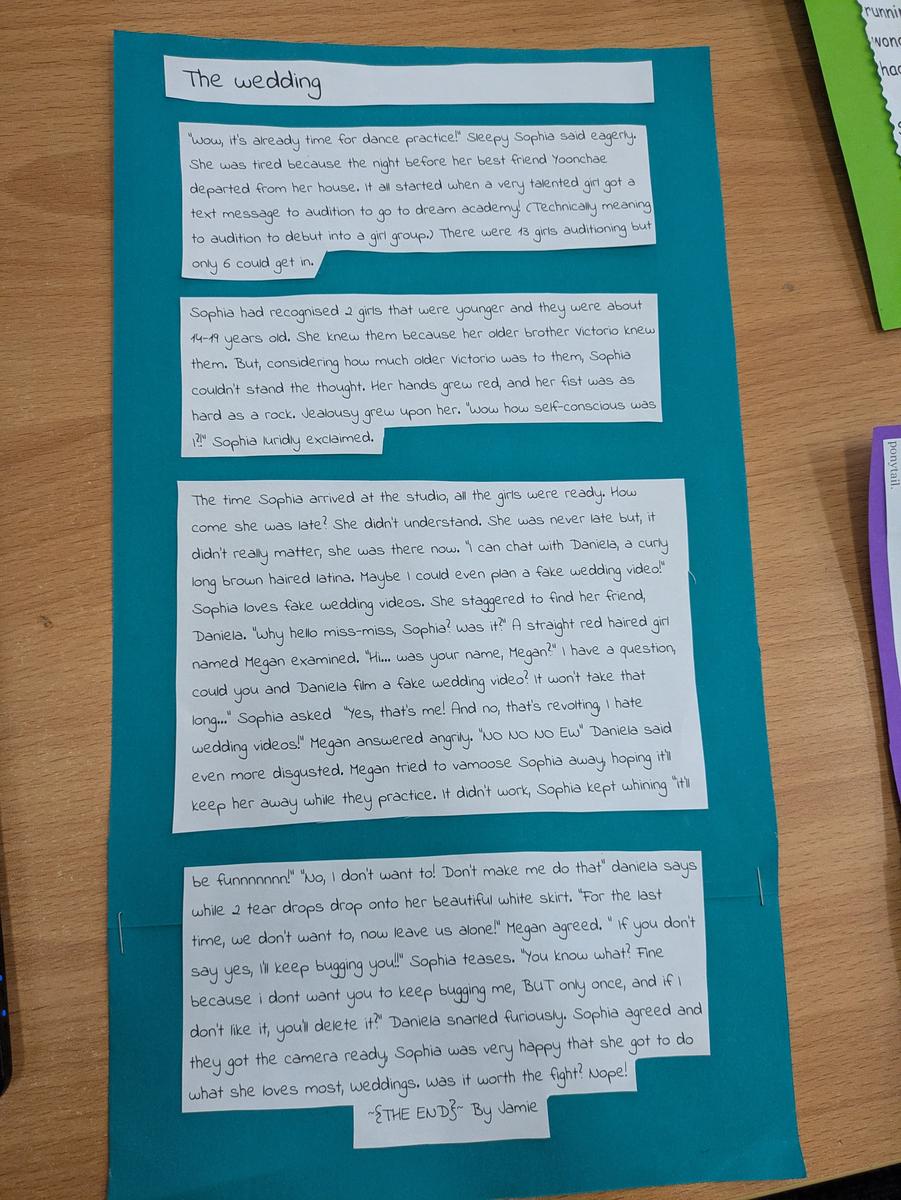 The wedding
"Wow, it's already time for dance practice!" Sleepy Sophia said eagerly.
She was tired because the night before her best friend Yoonchae
departed from her house. It all started when a very talented girl got a
text message to audition to go to dream academy! (Technically meaning
to audition to debut into a girl group.) There were 13 girls auditioning but
only 6 could get in.
Sophia had recognised 2 girls that were younger and they were about
14-19 years old. She knew them because her older brother Victorio knew
them. But, considering how much older Victorio was to them, Sophia
couldn't stand the thought. Her hands grew red, and her fist was as
hard as a rock. Jealousy grew upon her. "Wow how self-conscious was
I?!" Sophia luridly exclaimed.
The time Sophia arrived at the studio, all the girls were ready. How
come she was late? She didn't understand. She was never late but, it
didn't really matter, she was there now. "I can chat with Daniela, a curly
long brown haired latina. Maybe I could even plan a fake wedding video!"
Sophia loves fake wedding videos. She staggered to find her friend,
Daniela. "Why hello miss-miss, Sophia? was it?" A straight red haired girl
named Megan examined. "Hi... was your name, Megan?" I have a question,
could you and Daniela film a fake wedding video? It won't take that
long..." Sophia asked "Yes, that's me! And no, that's revolting, I hate
wedding videos!" Megan answered angrily. "NO NO NO EW" Daniela said
even more disgusted. Megan tried to vamoose Sophia away, hoping it'll
keep her away while they practice. It didn't work, Sophia kept whining "it'll
be funnnnnnn!" "No, I don't want to! Don't make me do that" daniela says
while 2 tear drops drop onto her beautiful white skirt. "For the last
time, we don't want to, now leave us alone!" Megan agreed. " If you don't
say yes, I'll keep bugging you!!" Sophia teases. "You know what? Fine
because i dont want you to keep bugging me, BUT only once, and if I
don't like it, you'll delete it?" Daniela snarled furiously. Sophia agreed and
they got the camera ready, Sophia was very happy that she got to do
what she loves most, weddings. Was it worth the fight? Nope!
~{THE END}~ By Jamie
runni
ponytail.